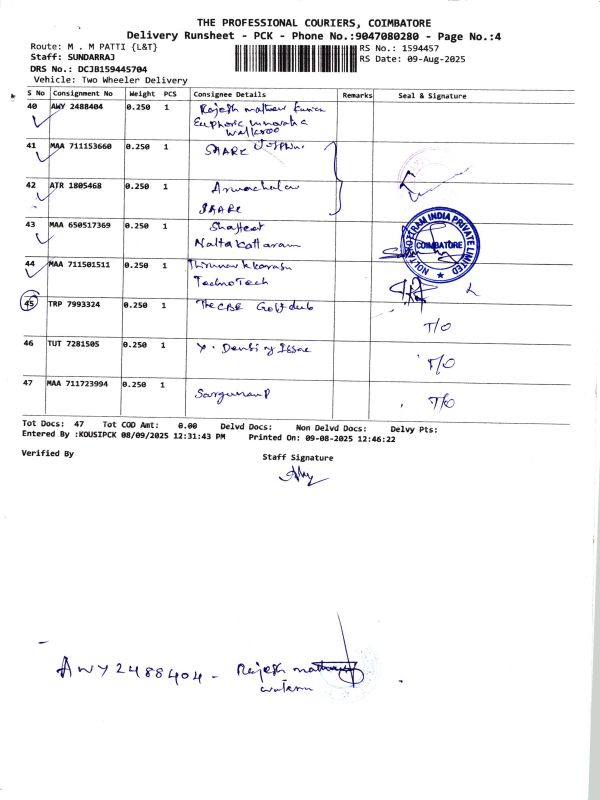 THE PROFESSIONAL COURIERS, COIMBATORE
Delivery Runsheet - PCK - Phone No.:9047080280 - Page No.:4
Route: M . M PATTI {L&T} RS No.: 1594457
Staff: SUNDARRAJ RS Date: 09-Aug-2025
DRS No.: DCJB159445704
Vehicle: Two Wheeler Delivery
S No Consignment No Weight PCS Consignee Details Remarks Seal & Signature
40 AWY 2488404 0.250 1 Rajesh mathew
Euphoric
41 MAA 711153660 0.250 1 SHARE
42 ATR 1805468 0.250 1 Arunachalam
SHARE
43 MAA 650517369 0.250 1
Nalta Kottaram
NOLTA KOTTRAM INDIA PRIVATE LIMITED
COIMBATORE
44 MAA 711501511 0.250 1
TechnoTech
45 TRP 7993324 0.250 1 The CBE Golf club T/O
46 TUT 7281505 0.250 1 T/O
47 MAA 711723994 0.250 1 Sargunan P T/O
Tot Docs: 47 Tot COD Amt: 0.00 Delvd Docs: Non Delvd Docs: Delvy Pts:
Entered By :KOUSIPCK 08/09/2025 12:31:43 PM Printed On: 09-08-2025 12:46:22
Verified By Staff Signature
AWY 2488404 - Rajesh